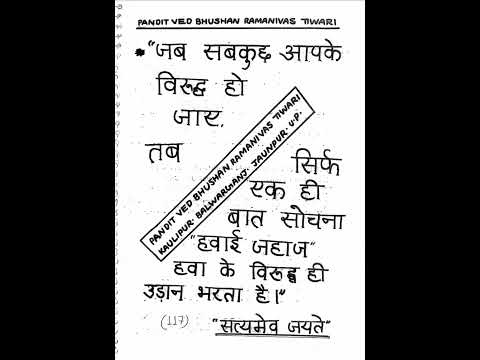 PANDIT VED BHUSHAN RAMANIVAS TIWARI
"जब सबकुछ आपके
विरुद्ध हो
जाए,
तब
PANDIT VED BHUSHAN RAMANIVAS TIWARI
KAULIPUR. BALWARGANJ. JAUNPUR. U.P.
सिर्फ
एक ही
बात सोचना
"हवाई जहाज"
हवा के विरुद्ध ही
उड़ान भरता है।"
(117)
"सत्यमेव जयते"